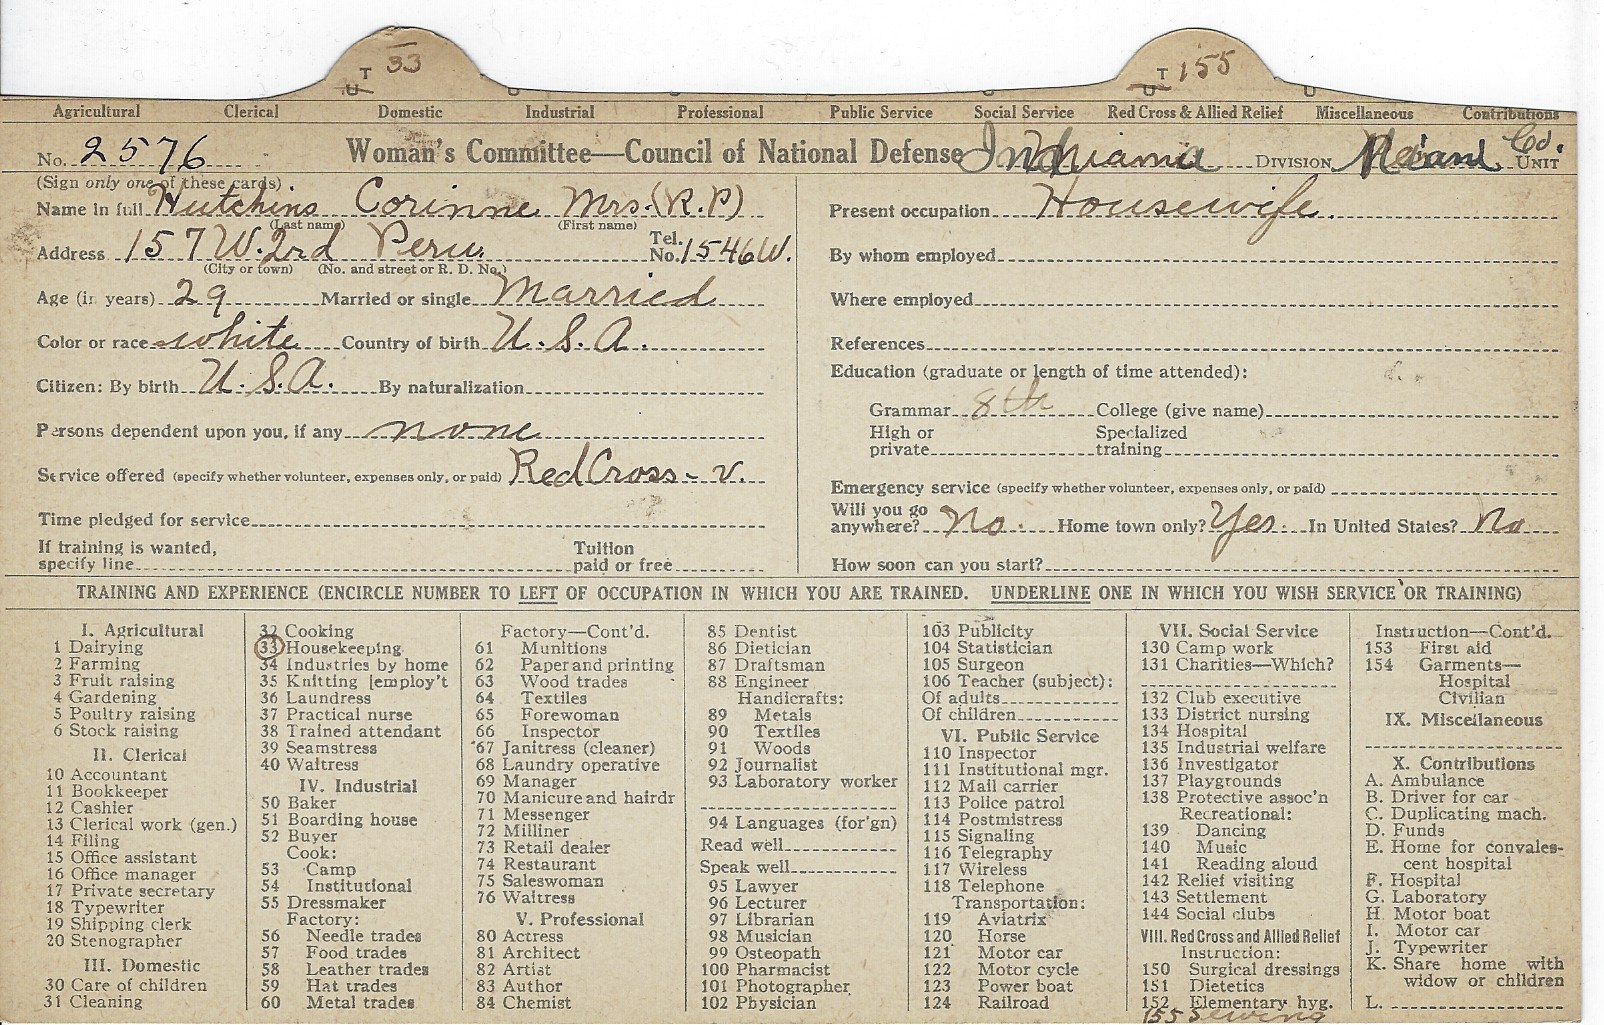 T 33
T 155
U
U
Agricultural Clerical Domestic Industrial Professional Public Service Social Service Red Cross & Allied Relief Miscellaneous Contributions
No. 2576 Woman's Committee—Council of National Defense Indiana DIVISION Miami Co. UNIT
(Sign only one of these cards)
Name in full Hutchins Corinne Mrs. (R.P)
(Last name) (First name)
Address 157 W. 2rd Peru. Tel. No. 1546W.
(City or town) (No. and street or R. D. No.)
Age (in years) 29 Married or single Married
Color or race white Country of birth U.S.A.
Citizen: By birth U.S.A. By naturalization
Persons dependent upon you, if any none
Service offered (specify whether volunteer, expenses only, or paid) Red Cross - v.
Time pledged for service
If training is wanted, specify line Tuition paid or free
Present occupation Housewife.
By whom employed
Where employed
References
Education (graduate or length of time attended):
Grammar 8th College (give name)
High or private Specialized training
Emergency service (specify whether volunteer, expenses only, or paid)
Will you go anywhere? No. Home town only? Yes. In United States? No
How soon can you start?
TRAINING AND EXPERIENCE (ENCIRCLE NUMBER TO LEFT OF OCCUPATION IN WHICH YOU ARE TRAINED. UNDERLINE ONE IN WHICH YOU WISH SERVICE OR TRAINING)
I. Agricultural
1 Dairying
2 Farming
3 Fruit raising
4 Gardening
5 Poultry raising
6 Stock raising
II. Clerical
10 Accountant
11 Bookkeeper
12 Cashier
13 Clerical work (gen.)
14 Filing
15 Office assistant
16 Office manager
17 Private secretary
18 Typewriter
19 Shipping clerk
20 Stenographer
III. Domestic
30 Care of children
31 Cleaning
32 Cooking
33 Housekeeping
34 Industries by home
35 Knitting [employ't
36 Laundress
37 Practical nurse
38 Trained attendant
39 Seamstress
40 Waitress
IV. Industrial
50 Baker
51 Boarding house
52 Buyer
Cook:
53 Camp
54 Institutional
55 Dressmaker
Factory:
56 Needle trades
57 Food trades
58 Leather trades
59 Hat trades
60 Metal trades
Factory—Cont'd.
61 Munitions
62 Paper and printing
63 Wood trades
64 Textiles
65 Forewoman
66 Inspector
67 Janitress (cleaner)
68 Laundry operative
69 Manager
70 Manicure and hairdr
71 Messenger
72 Milliner
73 Retail dealer
74 Restaurant
75 Saleswoman
76 Waitress
V. Professional
80 Actress
81 Architect
82 Artist
83 Author
84 Chemist
85 Dentist
86 Dietician
87 Draftsman
88 Engineer
Handicrafts:
89 Metals
90 Textiles
91 Woods
92 Journalist
93 Laboratory worker
94 Languages (for'gn)
Read well
Speak well
95 Lawyer
96 Lecturer
97 Librarian
98 Musician
99 Osteopath
100 Pharmacist
101 Photographer
102 Physician
103 Publicity
104 Statistician
105 Surgeon
106 Teacher (subject):
Of adults
Of children
VI. Public Service
110 Inspector
111 Institutional mgr.
112 Mail carrier
113 Police patrol
114 Postmistress
115 Signaling
116 Telegraphy
117 Wireless
118 Telephone
Transportation:
119 Aviatrix
120 Horse
121 Motor car
122 Motor cycle
123 Power boat
124 Railroad
VII. Social Service
130 Camp work
131 Charities—Which?
132 Club executive
133 District nursing
134 Hospital
135 Industrial welfare
136 Investigator
137 Playgrounds
138 Protective assoc'n
Recreational:
139 Dancing
140 Music
141 Reading aloud
142 Relief visiting
143 Settlement
144 Social clubs
VIII. Red Cross and Allied Relief
Instruction:
150 Surgical dressings
151 Dietetics
152 Elementary hyg.
155 Sewing
Instruction—Cont'd.
153 First aid
154 Garments—
Hospital
Civilian
IX. Miscellaneous
X. Contributions
A. Ambulance
B. Driver for car
C. Duplicating mach.
D. Funds
E. Home for convales-
cent hospital
F. Hospital
G. Laboratory
H. Motor boat
I. Motor car
J. Typewriter
K. Share home with
widow or children
L.